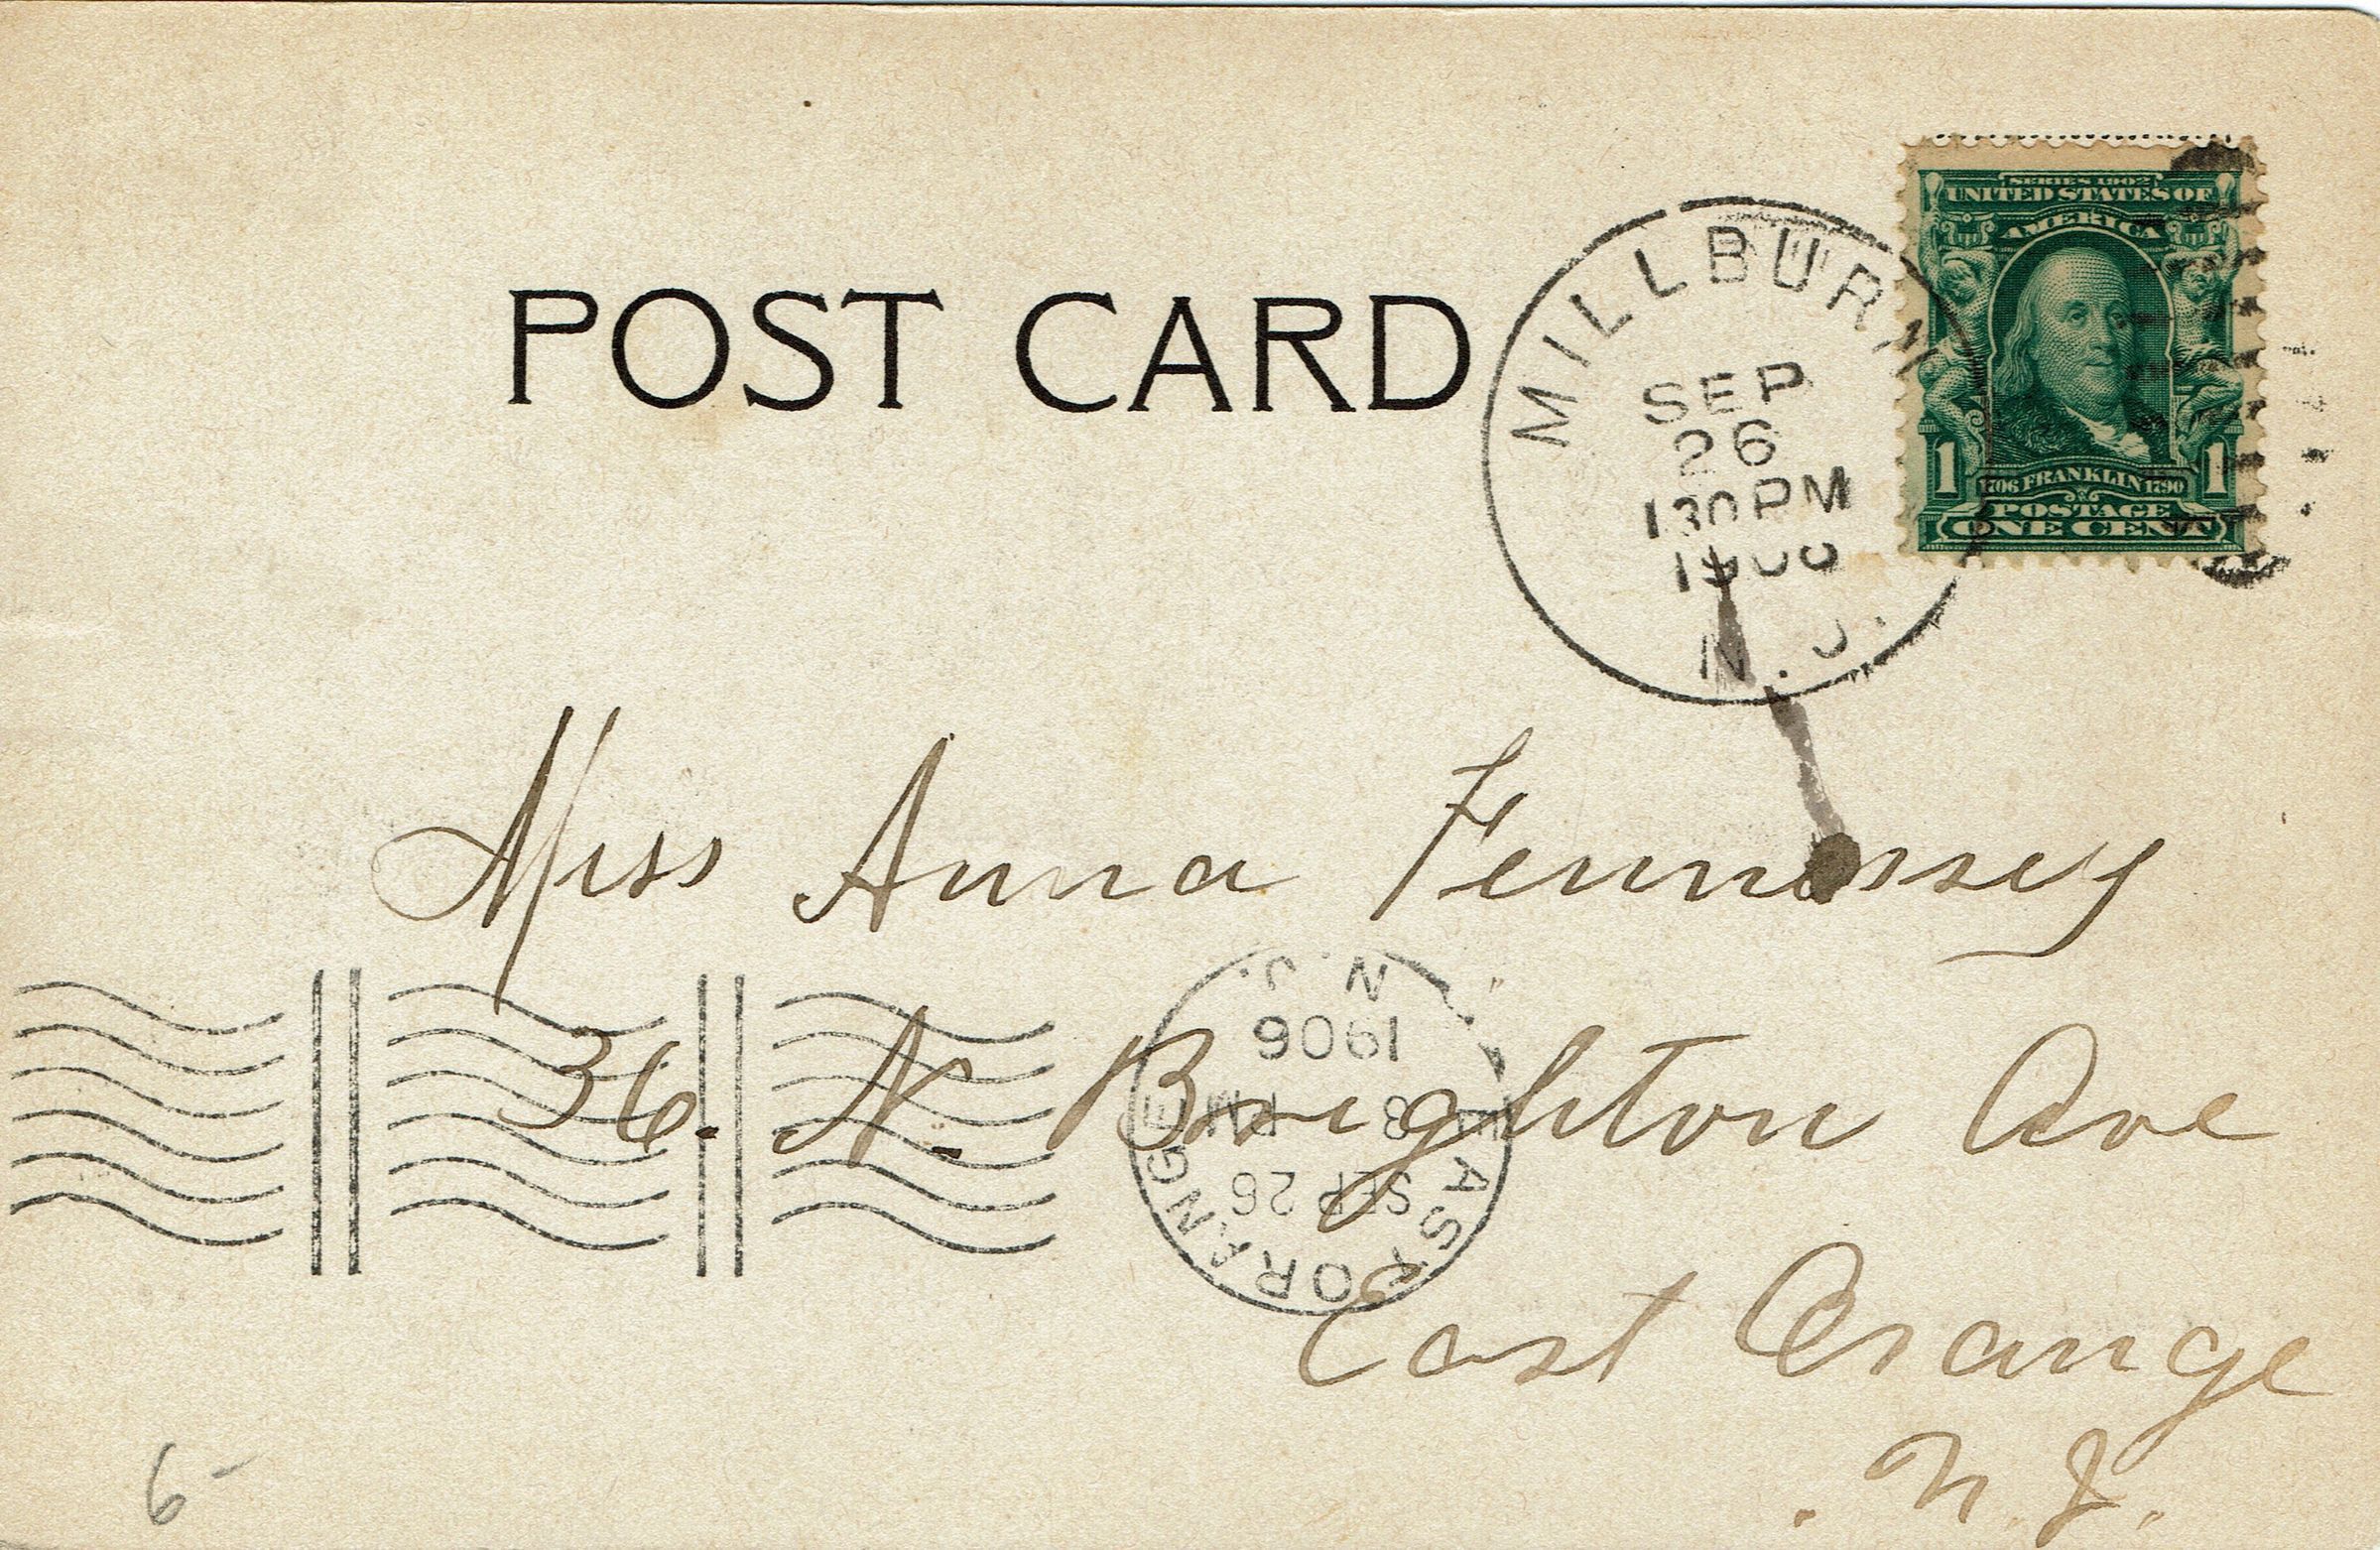 POST CARD
MILLBURN
SEP
26
130PM
1906
N.J.
SERIES 1902
UNITED STATES OF
AMERICA
1 1
1706 FRANKLIN 1790
POSTAGE
ONE CENT
Miss Anna Fennessey
36. N. Brighton Ave
East Orange
N. J.
EAST ORANGE
SEP 26
PM
1906
N.J.
6-